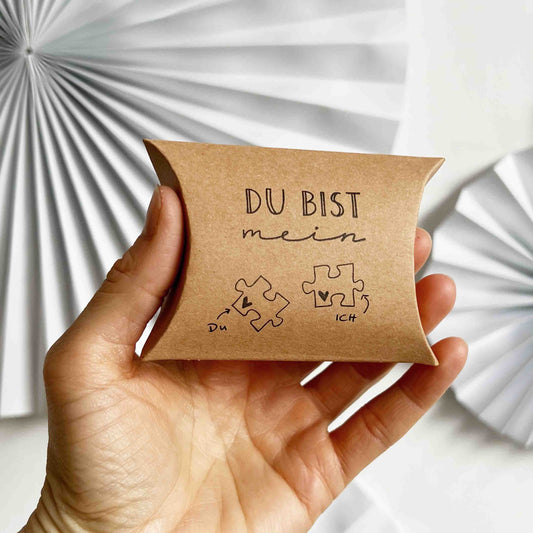 DU BIST
mein
Du
ICH